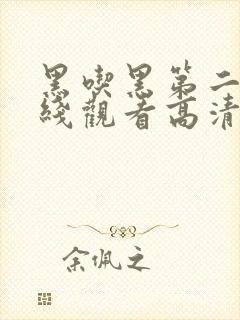 黑喫黑第二
綫觀看高清
余佩之